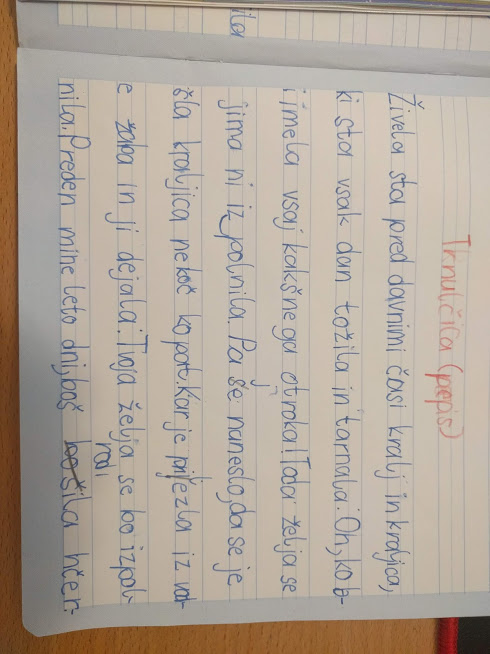 Trnulčica (prepis)
Živela sta pred davnimi časi kralj in kraljica,
ki sta vsak dan tožila in tarnala. Oh, ko b-
i imela vsaj kakšnega otroka! Toda želja se
jima ni izpolnila. Pa še naneslo, da se je
šla kraljica nekoč kopat. Kar je prilezla iz vod-
e žaba in ji dejala: Tvoja želja se bo izpol-
nila. Preden mine leto dni, boš rodila hčer-